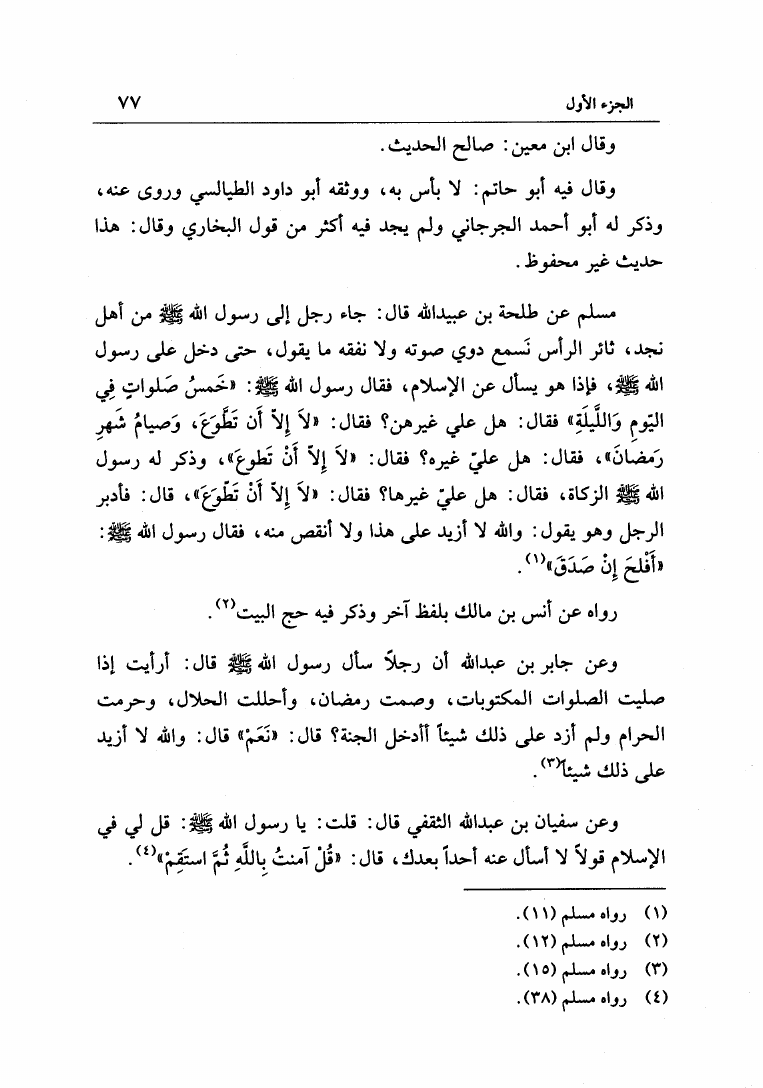 الجزء الأول ٧٧
وقال ابن معين: صالح الحديث.
وقال فيه أبو حاتم: لا بأس به، ووثقه أبو داود الطيالسي وروى عنه،
وذكر له أبو أحمد الجرجاني ولم يجد فيه أكثر من قول البخاري وقال: هذا
حديث غير محفوظ.
مسلم عن طلحة بن عبيدالله قال: جاء رجل إلى رسول الله ﷺ من أهل
نجد، ثائر الرأس نَسمع دوي صوته ولا نفقه ما يقول، حتى دخل على رسول
الله ﷺ، فإذا هو يسأل عن الإسلام، فقال رسول الله ﷺ: «خَمسُ صَلواتٍ فِي
اليَومِ وَاللَّيلَةِ» فقال: هل علي غيرهن؟ فقال: «لاَ إِلاّ أَن تَطَّوعَ، وَصيامُ شَهرِ
رَمضانَ»، فقال: هل عليّ غيره؟ فقال: «لاَ إِلاّ أَنْ تَطوعَ»، وذكر له رسول
الله ﷺ الزكاة، فقال: هل عليّ غيرها؟ فقال: «لاَ إِلاّ أَنْ تَطّوَعَ»، قال: فأدبر
الرجل وهو يقول: والله لا أزيد على هذا ولا أنقص منه، فقال رسول الله ﷺ:
«أَفْلحَ إِنْ صَدَقَ»(١).
رواه عن أنس بن مالك بلفظ آخر وذكر فيه حج البيت(٢).
وعن جابر بن عبدالله أن رجلاً سأل رسول الله ﷺ قال: أرأيت إذا
صليت الصلوات المكتوبات، وصمت رمضان، وأحللت الحلال، وحرمت
الحرام ولم أزد على ذلك شيئاً أأدخل الجنة؟ قال: «نَعَمْ» قال: والله لا أزيد
على ذلك شيئاً(٣).
وعن سفيان بن عبدالله الثقفي قال: قلت: يا رسول الله ﷺ: قل لي في
الإسلام قولاً لا أسأل عنه أحداً بعدك، قال: «قُلْ آمنتُ بِاللَّهِ ثُمَّ استَقِمْ»(٤).
(١) رواه مسلم (١١).
(٢) رواه مسلم (١٢).
(٣) رواه مسلم (١٥).
(٤) رواه مسلم (٣٨).